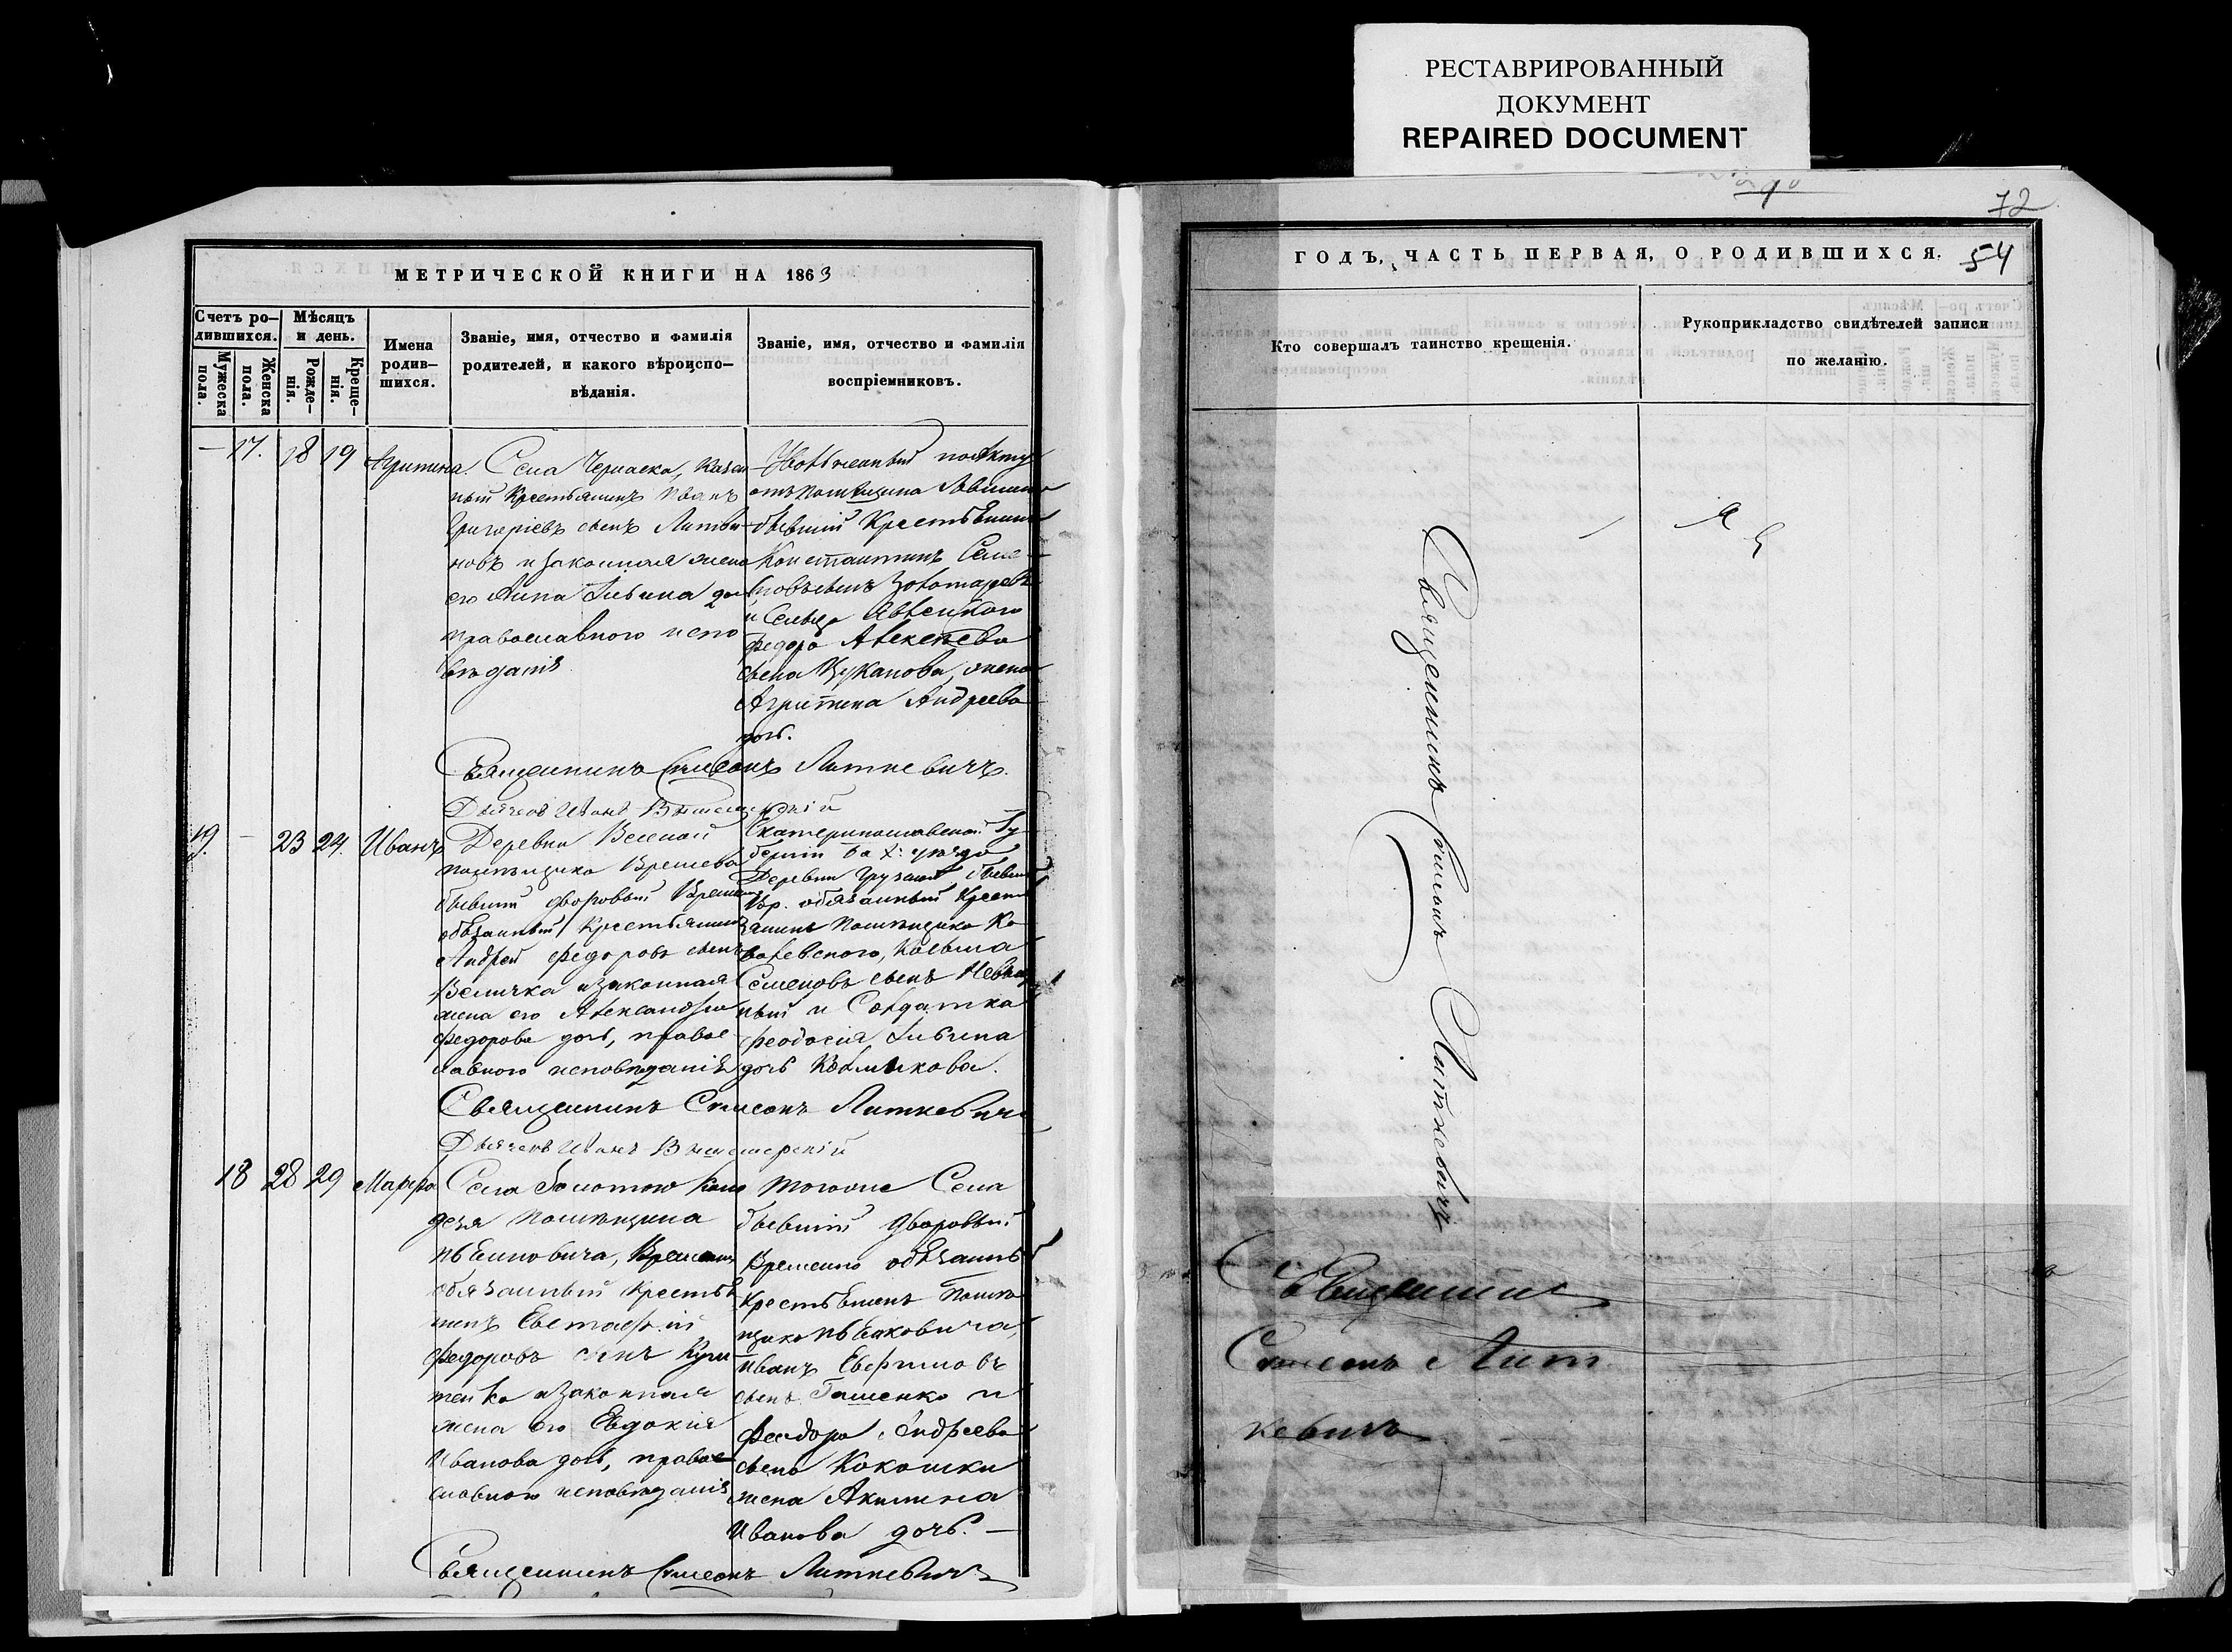 РЕСТАВРИРОВАННЫЙ
ДОКУМЕНТ
REPAIRED DOCUMENT
МЕТРИЧЕСКОЙ КНИГИ НА 1863
Счетъ ро–
дившихся.
Мѣсяцъ
и день.
Мужеска
пола.
Женска
пола.
Рожде–
нія.
Креще–
нія.
Имена
родив–
шихся.
Званіе, имя, отчество и фамилія
родителей, и какого вѣроиспо–
вѣданія.
Званіе, имя, отчество и фамилія
воспріемниковъ.
— 17. 18 19 Агрипина
Села
Крестьянинъ Иванъ
Григоріевъ сынъ Литви
новъ и законная жена
его Анна Ильина доч
православнаго испо
вѣданія
бывшій Крестьянинъ
Константинъ Семе
новъ сынъ Золотаревъ
и
Федора Алексѣева
сына Цуканова, жена
Агрипина Андреева
дочь.
Священникъ Симеонъ Литкевичъ.
Дьячекъ Иванъ
19. — 23 24. Иванъ
Деревни Веселой
помѣщика
бывшій дворовый Временно
обязанный Крестьянинъ
Андрей Федоровъ сынъ
Величка и законная
жена его Александра
Федорова дочь, правос
лавнаго исповѣданія
Екатеринославской Гу
берніи Ба х: уѣзда
Деревни Грузской бывш
Вр. обязанный Крестья
янинъ Помѣщика Ко
валевского, Косьма
Семеновъ сынъ
ный и Солдатка
Феодосія Ильина
дочь
Священникъ Симеонъ Литкевичъ
Дьячекъ Иванъ
18 28 29 Марѳа
Села Золотого Коло
дезя Помѣщика
Временно
обязанный Крестья
нинъ Евстафій
Федоровъ сынъ
тенко и законная
жена его Евдокія
Иванова дочь, правос
лавнаго исповѣданія
Тогоже Села
бывшій дворовый
Временно обязанный
Крестьянинъ Помѣ
щика
Иванъ Евфимовъ
сынъ Гашенко и
Феодора Андреева
сына Кокошки
жена Акилина
Иванова дочь. —
Священникъ Симеонъ Литкевичъ
72
ГОДЪ, ЧАСТЬ ПЕРВАЯ, О РОДИВШИХСЯ.
54
Кто совершалъ таинство крещенія.
Рукоприкладство свидѣтелей записи
по желанію.
Священникъ Симеонъ Литкевичъ
Священникъ
Симеонъ Лит
кевичъ